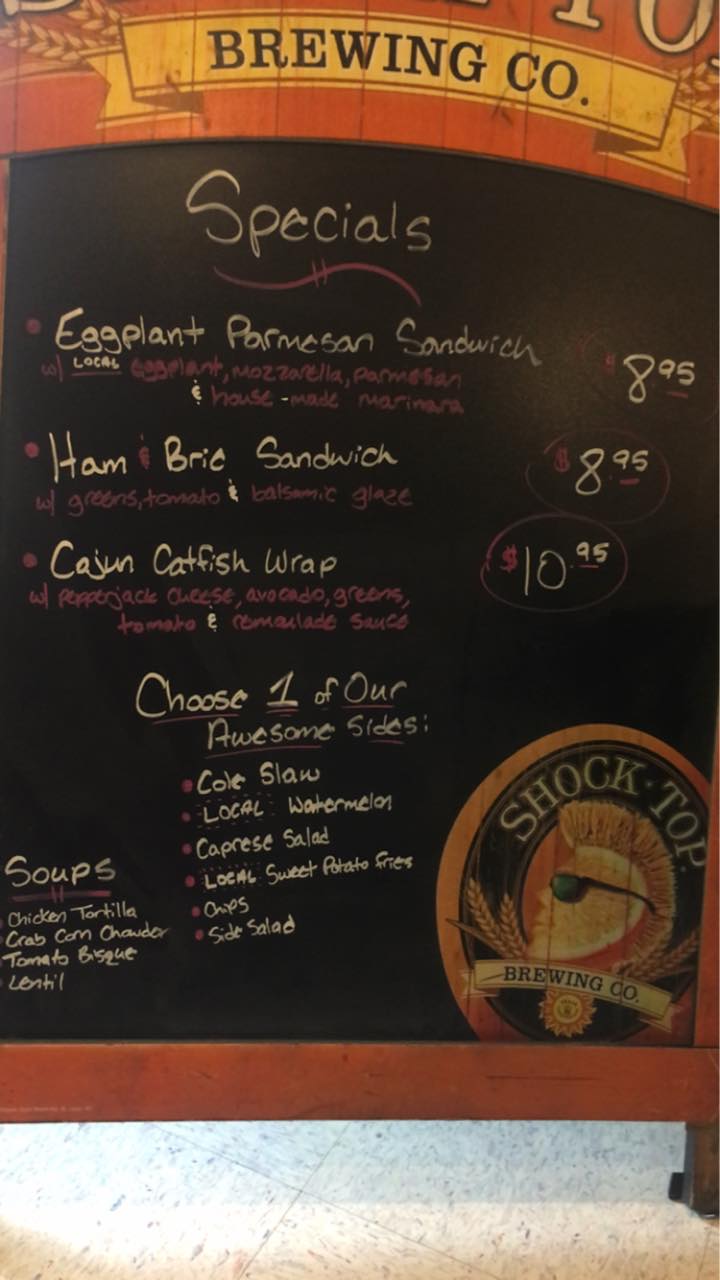 BREWING CO.
Specials
• Eggplant Parmesan Sandwich $8.95
w/ LOCAL eggplant, mozzarella, parmesan
& house-made marinara
• Ham & Brie Sandwich $8.95
w/ greens, tomato & balsamic glaze
• Cajun Catfish Wrap $10.95
w/ pepperjack cheese, avocado, greens,
tomato & remoulade sauce
Choose 1 of Our
Awesome Sides:
• Cole Slaw
• LOCAL Watermelon
• Caprese Salad
• LOCAL Sweet Potato fries
• Chips
• Side Salad
Soups
Chicken Tortilla
Crab Corn Chowder
Tomato Bisque
Lentil
SHOCK·TOP
BREWING CO.